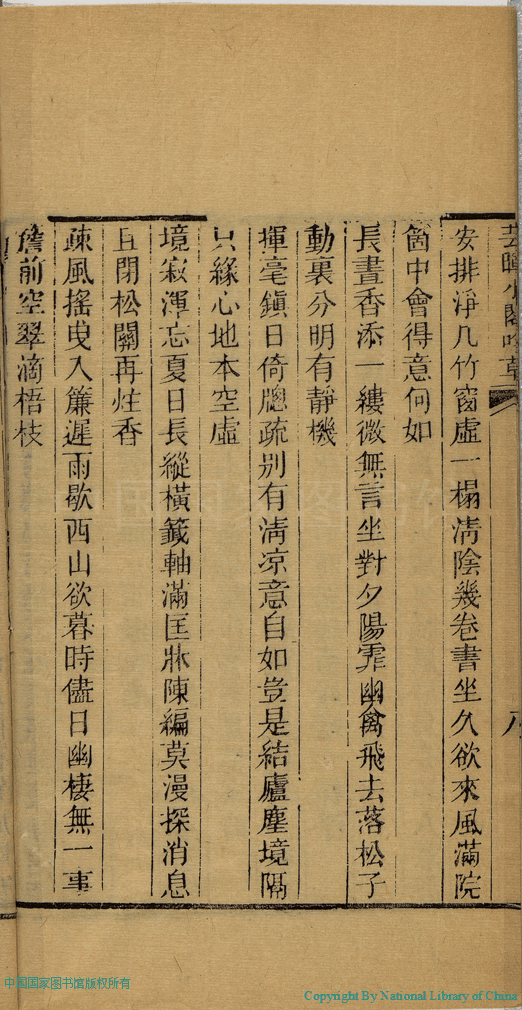 芸暉小閣吟草
八
安排淨几竹窗虛一榻清陰幾卷書坐久欲來風滿院
箇中會得意何如
長晝香添一縷微無言坐對夕陽霏幽禽飛去落松子
動裏分明有靜機
揮毫鎮日倚牕疏別有清凉意自如豈是結廬塵境隔
只緣心地本空虛
境寂渾忘夏日長縱橫籤軸滿匡牀陳編莫漫探消息
且閉松關再炷香
疎風搖曳入簾遲雨歇西山欲暮時儘日幽棲無一事
簷前空翠滴梧枝
中国国家图书馆版权所有
Copyright By National Library of China